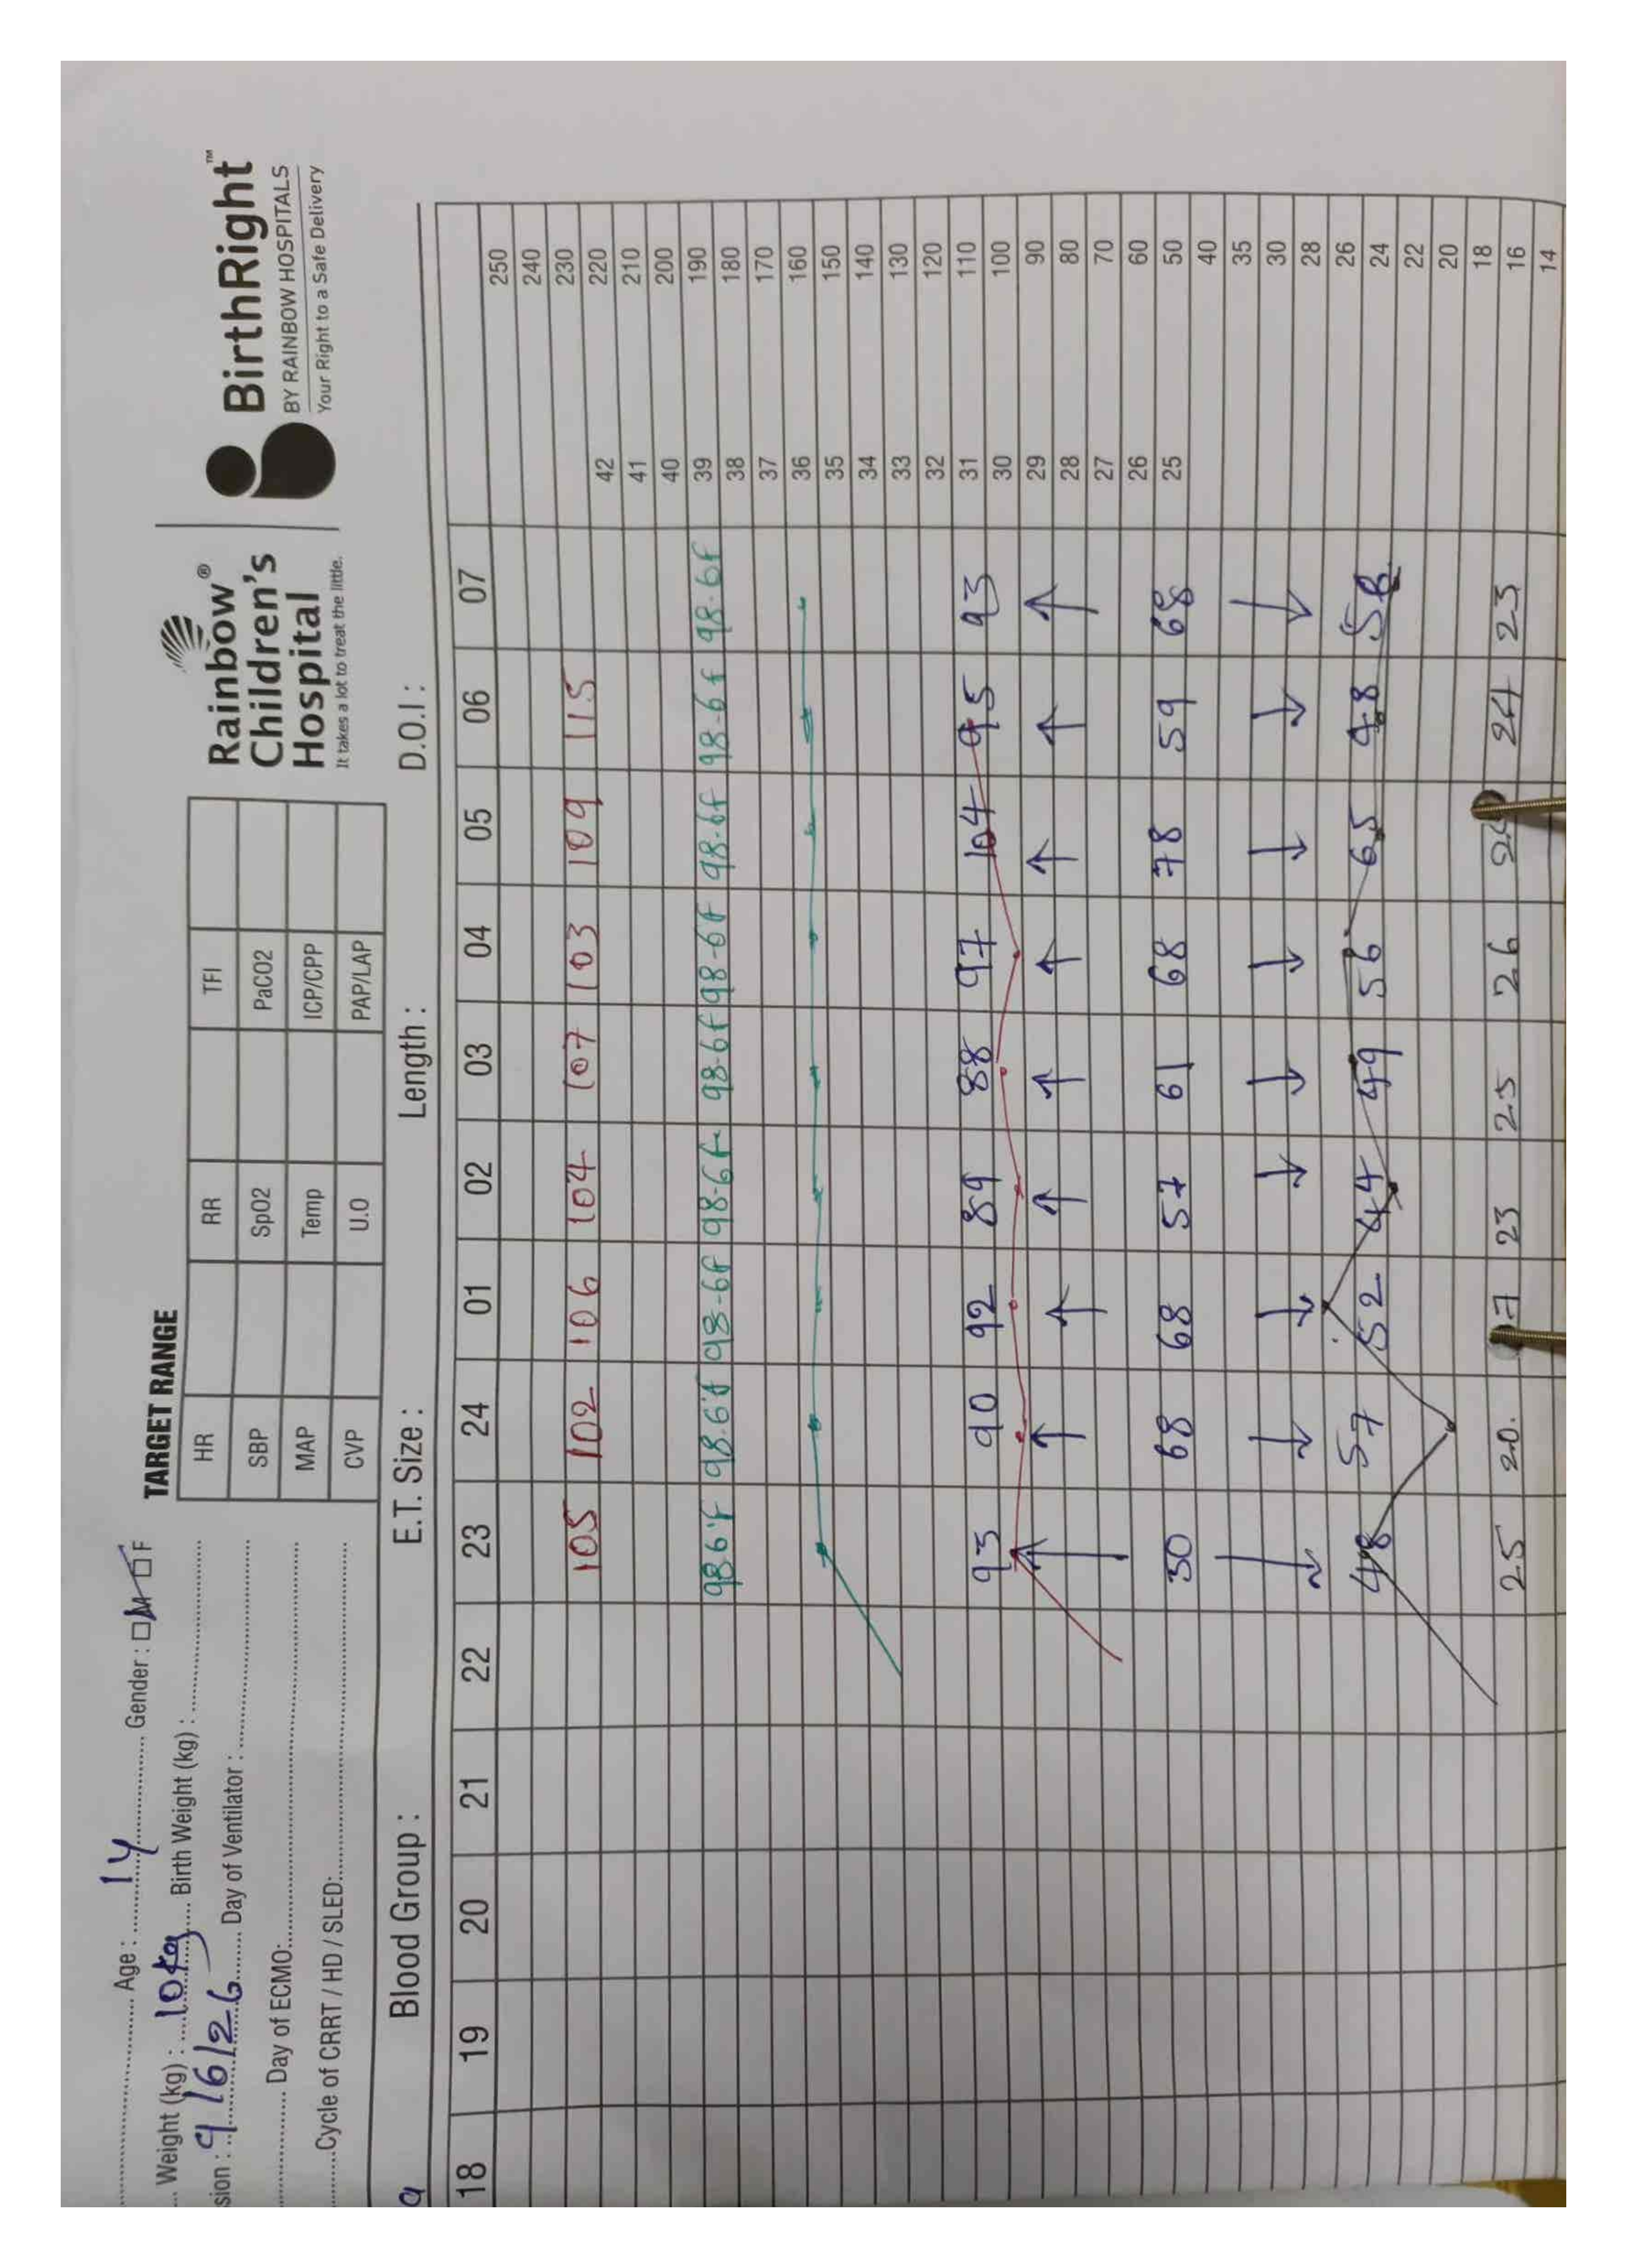 Age : 1y Gender : □ M □ F
Weight (kg) : 10kg Birth Weight (kg) :
sion : 9/6/26 Day of Ventilator :
Day of ECMO:
Cycle of CRRT / HD / SLED:
TARGET RANGE
HR RR TFI
SBP SpO2 PaCO2
MAP Temp ICP/CPP
CVP U.O PAP/LAP
Rainbow®
Children's
Hospital
It takes a lot to treat the little.
BirthRight™
BY RAINBOW HOSPITALS
Your Right to a Safe Delivery
Blood Group : E.T. Size : Length : D.O.I :
18 19 20 21 22 23 24 01 02 03 04 05 06 07
250
240
230
105 102 106 104 107 103 109 115 42 220
41 210
40 200
98.6f 98.6f 98.6f 98.6f 98.6f 98.6f 98.6f 98.6f 98.6f 39 190
38 180
37 170
36 160
35 150
34 140
33 130
32 120
93 90 92 89 88 97 104 95 93 31 110
30 100
29 90
28 80
27 70
26 60
50 68 68 57 61 68 78 59 68 25 50
40
35
30
28
26
48 57 52 44 49 56 65 48 58 24
22
20
18
25 20. 23 25 26 24 23 16
14